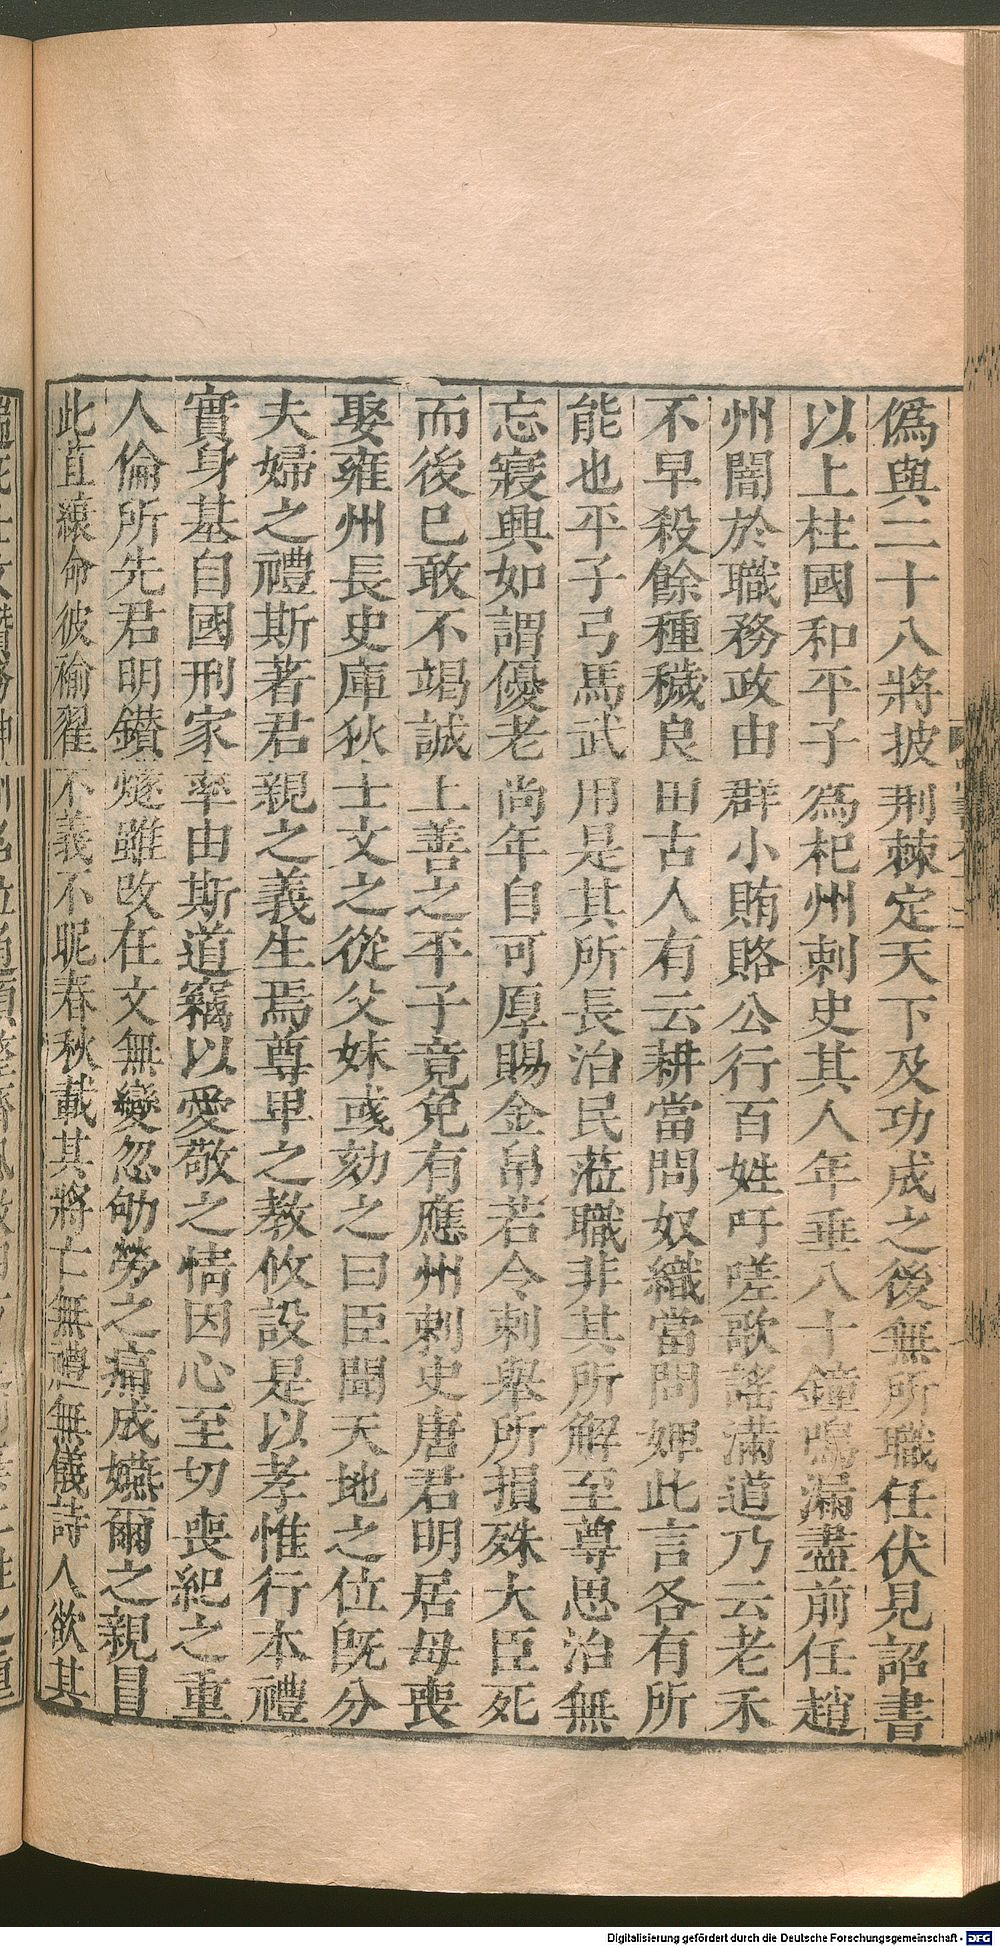 偽與二十八將披荆棘定天下及功成之後無所職任伏見詔書
以上柱國和平子為杞州刺史其人年垂八十鐘鳴漏盡前任趙
州闇於職務政由群小賄賂公行百姓吁嗟歌謠滿道乃云老禾
不早殺餘種穢良田古人有云耕當問奴織當問婢此言各有所
能也平子弓馬武用是其所長治民蒞職非其所解至尊思治無
忘寢興如謂優老尚年自可厚賜金帛若令刺舉所損殊大臣死
而後已敢不竭誠上善之平子竟免有應州刺史唐君明居母喪
娶雍州長史庫狄士文之從父妹彧劾之曰臣聞天地之位既分
夫婦之禮斯著君親之義生焉尊卑之教攸設是以孝惟行本禮
實身基自國刑家率由斯道竊以愛敬之情因心至切喪紀之重
人倫所先君明鑚燧雖改在文無變忽劬勞之痛成嬿爾之親冒
此苴縗命彼褕翟不義不昵春秋載其將亡無禮無儀詩人欲其
Digitalisierung gefördert durch die Deutsche Forschungsgemeinschaft - DFG